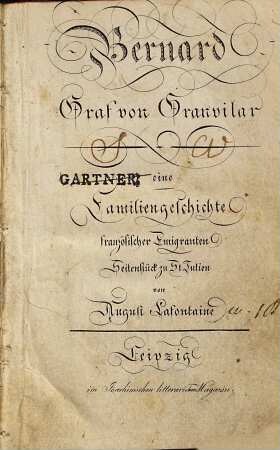 Bernard
Graf von Granvilar
S W
GARTNER, eine
Familiengeschichte
französischer Emigranten
Seitenstück zu St Julien
von
August Lafontaine
Leipzig
im Joachimschen litterarischen Magazin